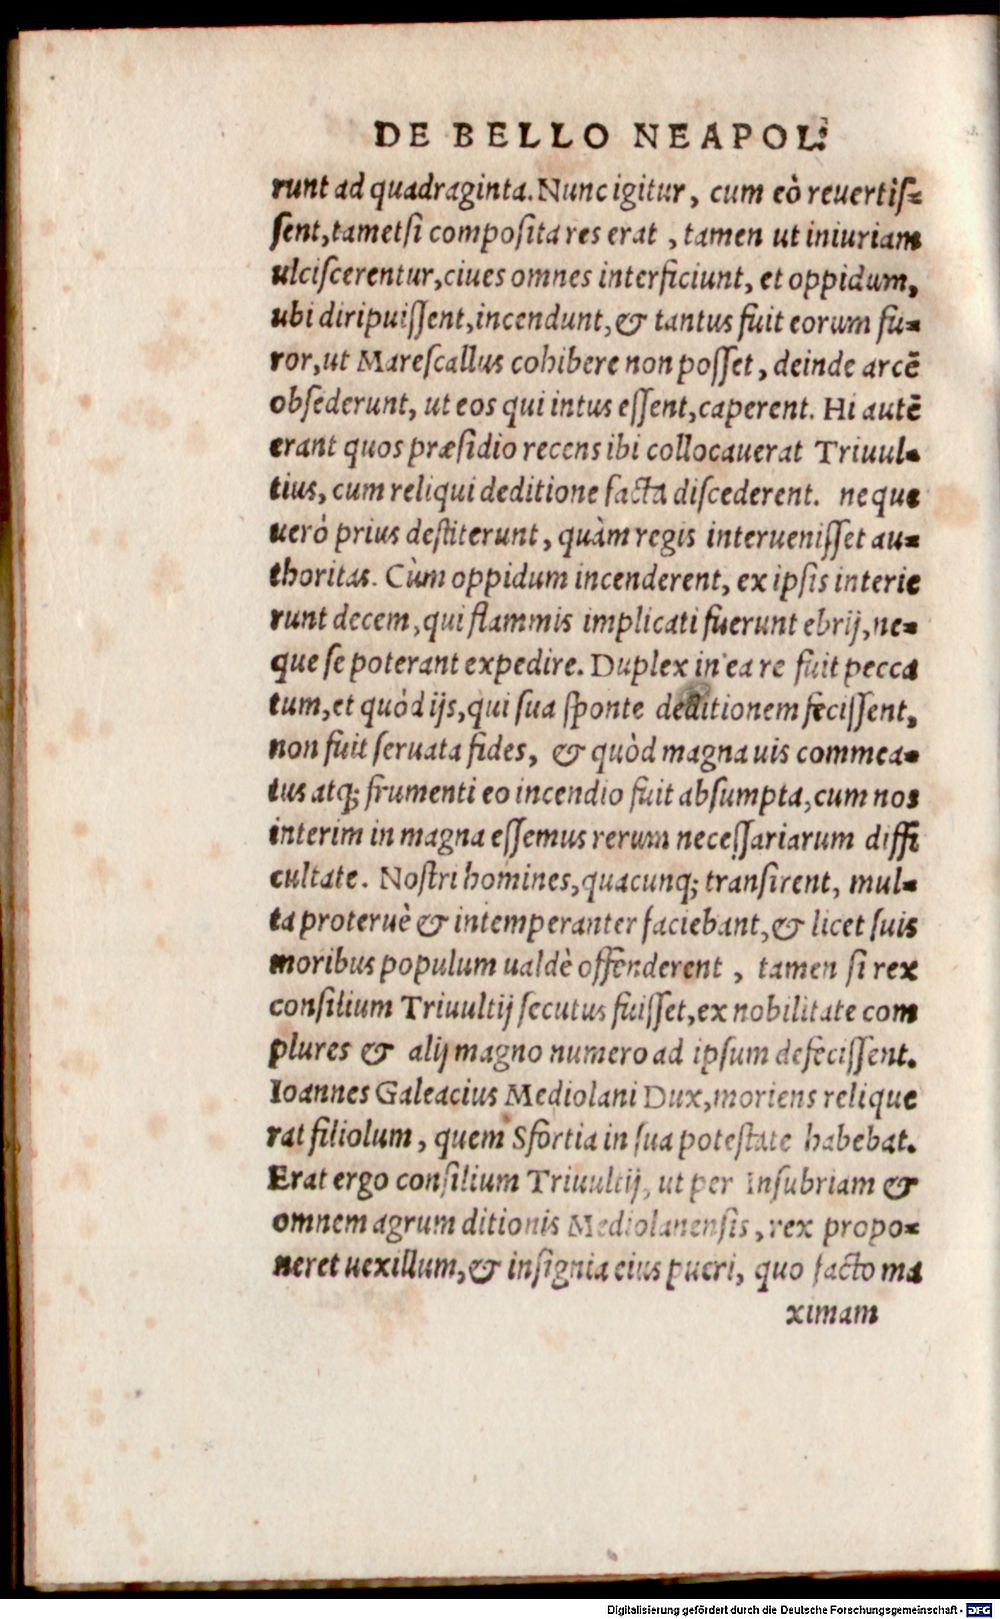 DE BELLO NEAPOL:
runt ad quadraginta. Nunc igitur, cum eò reuertiſ-
ſent, tametſi compoſita res erat, tamen ut iniuriam
ulciſcerentur, ciues omnes interficiunt, et oppidum,
ubi diripuiſſent, incendunt, & tantus fuit eorum fu-
ror, ut Mareſcallus cohibere non poſſet, deinde arcē
obſederunt, ut eos qui intus eſſent, caperent. Hi autē
erant quos præſidio recens ibi collocauerat Triuul-
tius, cum reliqui deditione facta diſcederent. neque
uerò prius deſtiterunt, quàm regis interueniſſet au-
thoritas. Cùm oppidum incenderent, ex ipſis interie
runt decem, qui flammis implicati fuerunt ebrij, ne-
que ſe poterant expedire. Duplex in ea re fuit pecca
tum, et quòd ijs, qui ſua ſponte deditionem feciſſent,
non fuit ſeruata fides, & quòd magna uis commea-
tus atq; frumenti eo incendio fuit abſumpta, cum nos
interim in magna eſſemus rerum neceſſariarum diffi
cultate. Noſtri homines, quacunq; tranſirent, mul-
ta proteruè & intemperanter faciebant, & licet ſuis
moribus populum ualdè offenderent, tamen ſi rex
conſilium Triuultij ſecutus fuiſſet, ex nobilitate com
plures & alij magno numero ad ipſum defeciſſent.
Ioannes Galeacius Mediolani Dux, moriens relique
rat filiolum, quem Sfortia in ſua poteſtate habebat.
Erat ergo conſilium Triuultij, ut per Inſubriam &
omnem agrum ditionis Mediolanenſis, rex propo-
neret uexillum, & inſignia eius pueri, quo facto ma
ximam
Digitalisierung gefördert durch die Deutsche Forschungsgemeinschaft - DFG